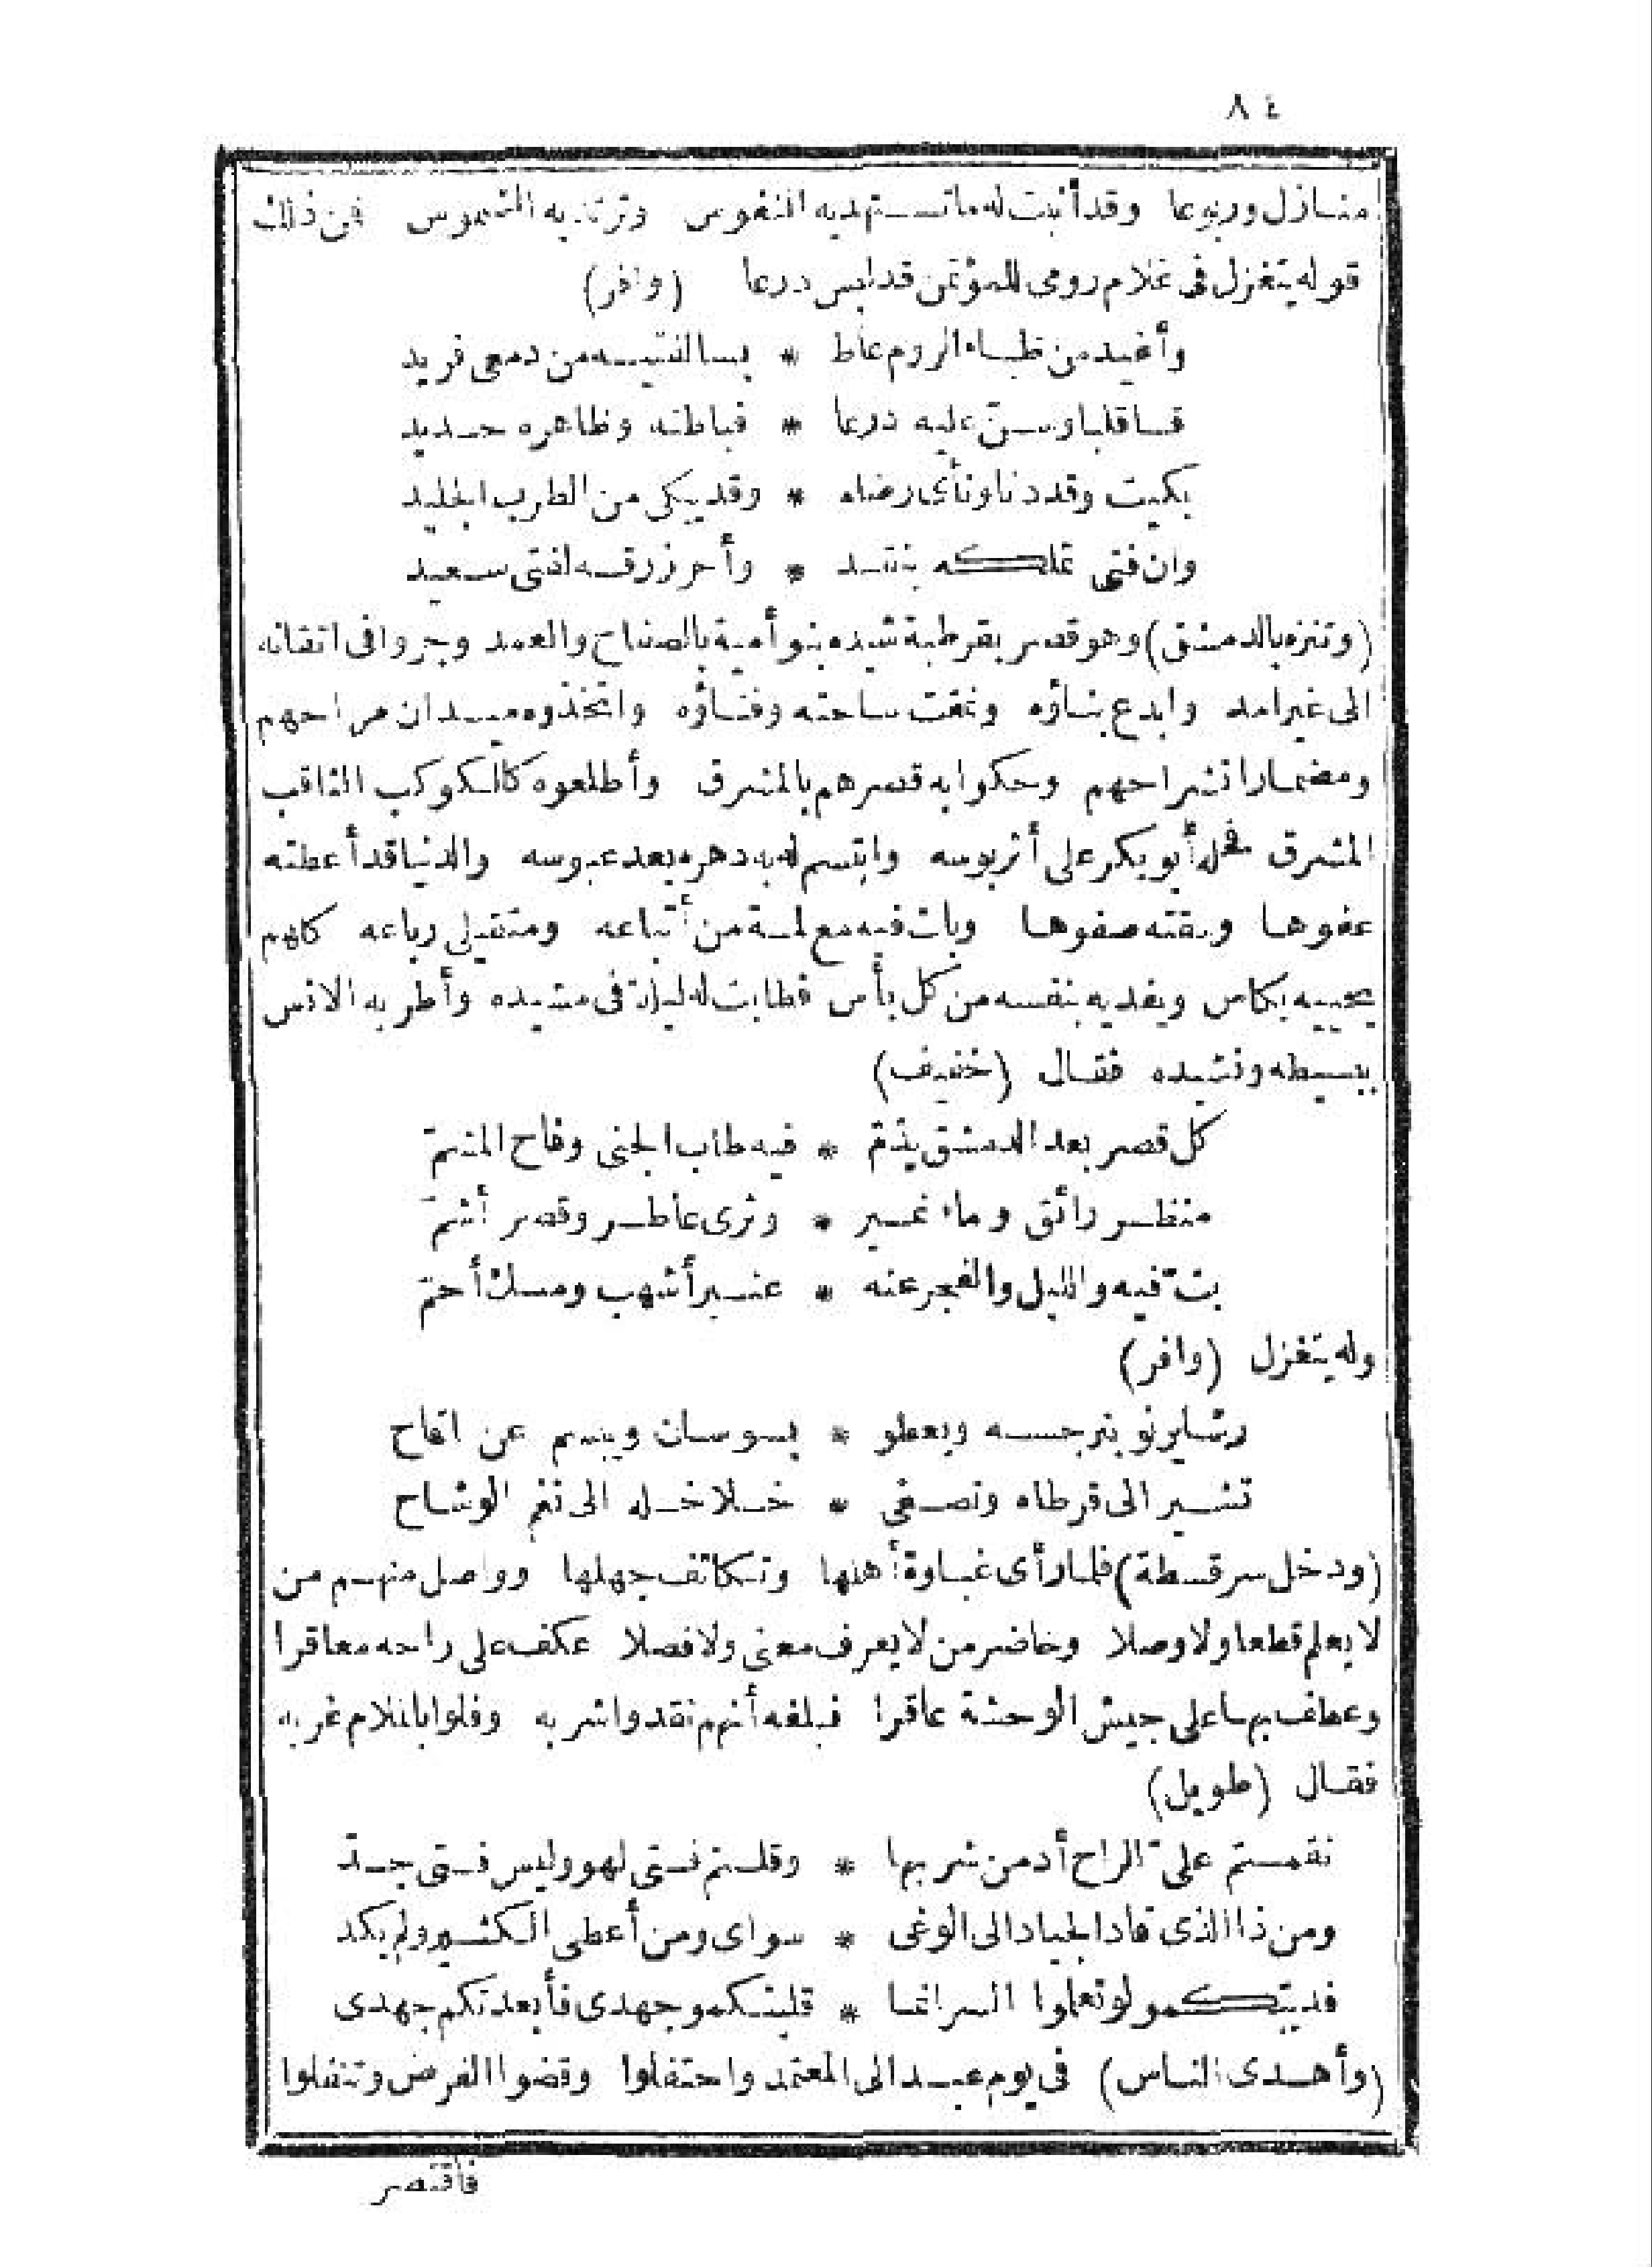 ٨٤
منازل وربوعا وقد أثبت له ما تستهديه النفوس وترتديه الشموس فمن ذلك
قوله يتغزل فى غلام رومى للمؤتمن قد لبس درعا (وافر)
وأغيد من ظباء الروم عاط * بسالفتيه من دمعى فريد
قسا قلبا وسنّ عليه درعا * فباطنه وظاهره حديد
بكيت وقد دنا ونأى رضاه * وقد يبكى من الطرب الجليد
وان فتى تملكه بنقد * وأحرز رقه لفتى سعيد
(وتنزه بالدمشق) وهو قصر بقرطبة شيده بنو أمية بالصفاح والعمد وجروا فى اتقانه
الى غير امد وابدع بناؤه ونمقت ساحته وفناؤه واتخذوه ميدان مراحهم
ومضمار انشراحهم وحكوا به قصرهم بالمشرق وأطلعوه كالكوكب الثاقب
المشرق فحله أبو بكر على أثر بوسه وابتسم له به دهره بعد عبوسه والدنيا قد أعطته
عفوها وسقته صفوها وبات فيه مع لمة من أتباعه ومتفيلى رباعه كلهم
يحييه بكاس ويفديه بنفسه من كل بأس فطابت له ليلته فى مشيده وأطربه الانس
ببسيطه ونشيده فقال (خفيف)
كل قصر بعد الدمشق يذمّ * فيه طاب الجنى وفاح المشمّ
منظر رائق وماء نمير * وثرى عاطر وقصر أشمّ
بتّ فيه والليل والفجر عنه * عنبر أشهب ومسك أحمّ
وله يتغزل (وافر)
رشا يرنو بنرجسه ويعطو * بسوسان ويبسم عن اقاح
تشير الى قرطاه وتصغى * خلاخله الى نغم الوشاح
(ودخل سرقسطة) فلما رأى غباوة أهلها وتكاثف جهلها وواصل منهم من
لا يعلم قطعا ولا وصلا وخاضر من لا يعرف معنى ولا فصلا عكف على راحه معاقرا
وعطف بها على جيش الوحشة عاقرا فبلغه أنهم نقدوا شربه وفلوا بالملام غربه
فقال (طويل)
نقمتم علىّ الراح أدمن شربها * وقلتم فتى لهو وليس فتى جدّ
ومن ذا الذى قاد الجياد الى الوغى * سواى ومن أعطى الكثير ولم يكد
فديتكمو لو تعلموا السر انما * قليتكمو جهدى فأبعدتكم جهدى
(وأهدى الناس) فى يوم عيد الى المعتمد واحتفلوا وقضوا الفرض وتنفلوا
فاقتصر